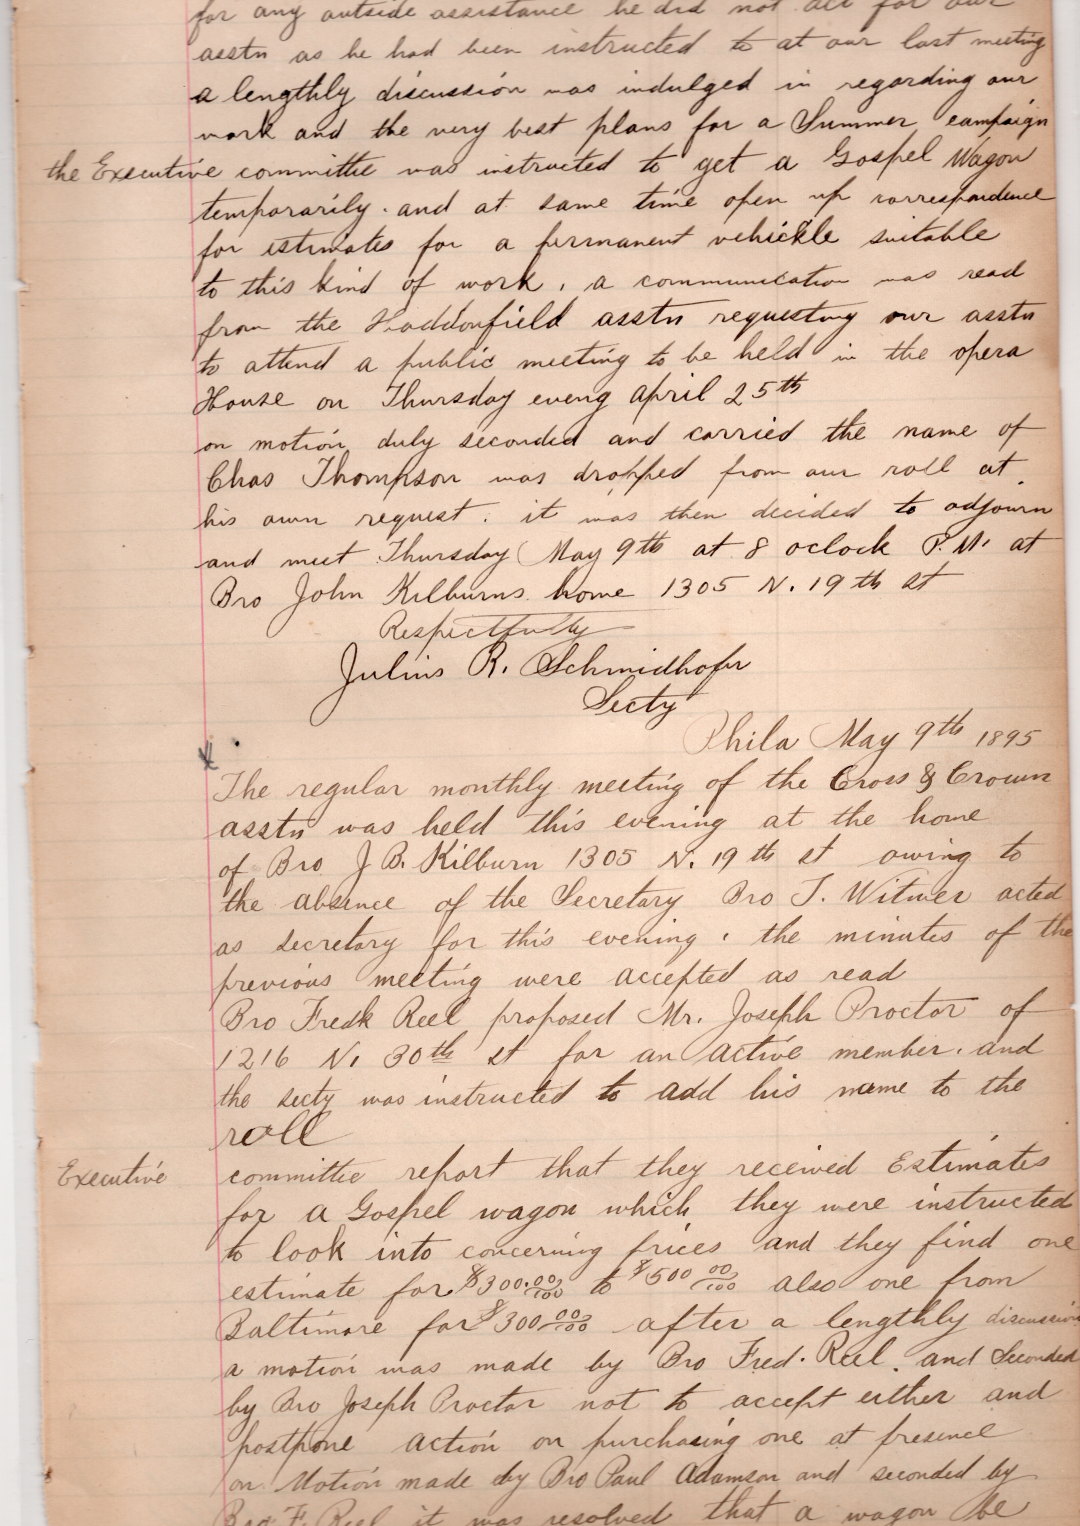 for any outside assistance he did not act for our
asstn as he had been instructed to at our last meeting
a lengthly discussion was indulged in regarding our
work and the very best plans for a Summer campaign
the Executive committie was instructed to get a Gospel Wagon
temporarily. and at same time open up correspondence
for estimates for a permanent vehickle suitable
to this kind of work, a communication was read
from the Haddonfield asstn requesting our asstn
to attend a public meeting to be held in the opera
House on Thursday eveng april 25th
on motion duly seconded and carried the name of
Chas Thompson was dropped from our roll at
his own request. it was then decided to adjourn
and meet Thursday May 9th at 8 oclock P.M. at
Bro John Kilburns home 1305 N. 19th st
Respectfully
Julius R. Schmidhofer
Secty
Phila May 9th 1895
The regular monthly meeting of the Cross & Crown
asstn was held this evening at the home
of Bro J B. Kilburn 1305 N. 19th st owing to
the absence of the Secretary Bro T. Witmer acted
as secretary for this evening, the minutes of the
previous meeting were accepted as read
Bro Fredk Reel proposed Mr. Joseph Proctor of
1216 N. 30th st for an active member. and
the secty was instructed to add his name to the
roll
Executive committie report that they received Estimates
for a Gospel wagon which they were instructed
to look into concerning prices and they find one
estimate for $300.00/100 to $500 00/100 also one from
Baltimore for $300 00/100 after a lengthly discussion
a motion was made by Bro Fred. Reel. and Seconded
by Bro Joseph Proctor not to accept either and
postpone action on purchasing one at presence
on Motion made by Bro Paul Adamson and seconded by
Bro F. Reel it was resolved that a wagon be